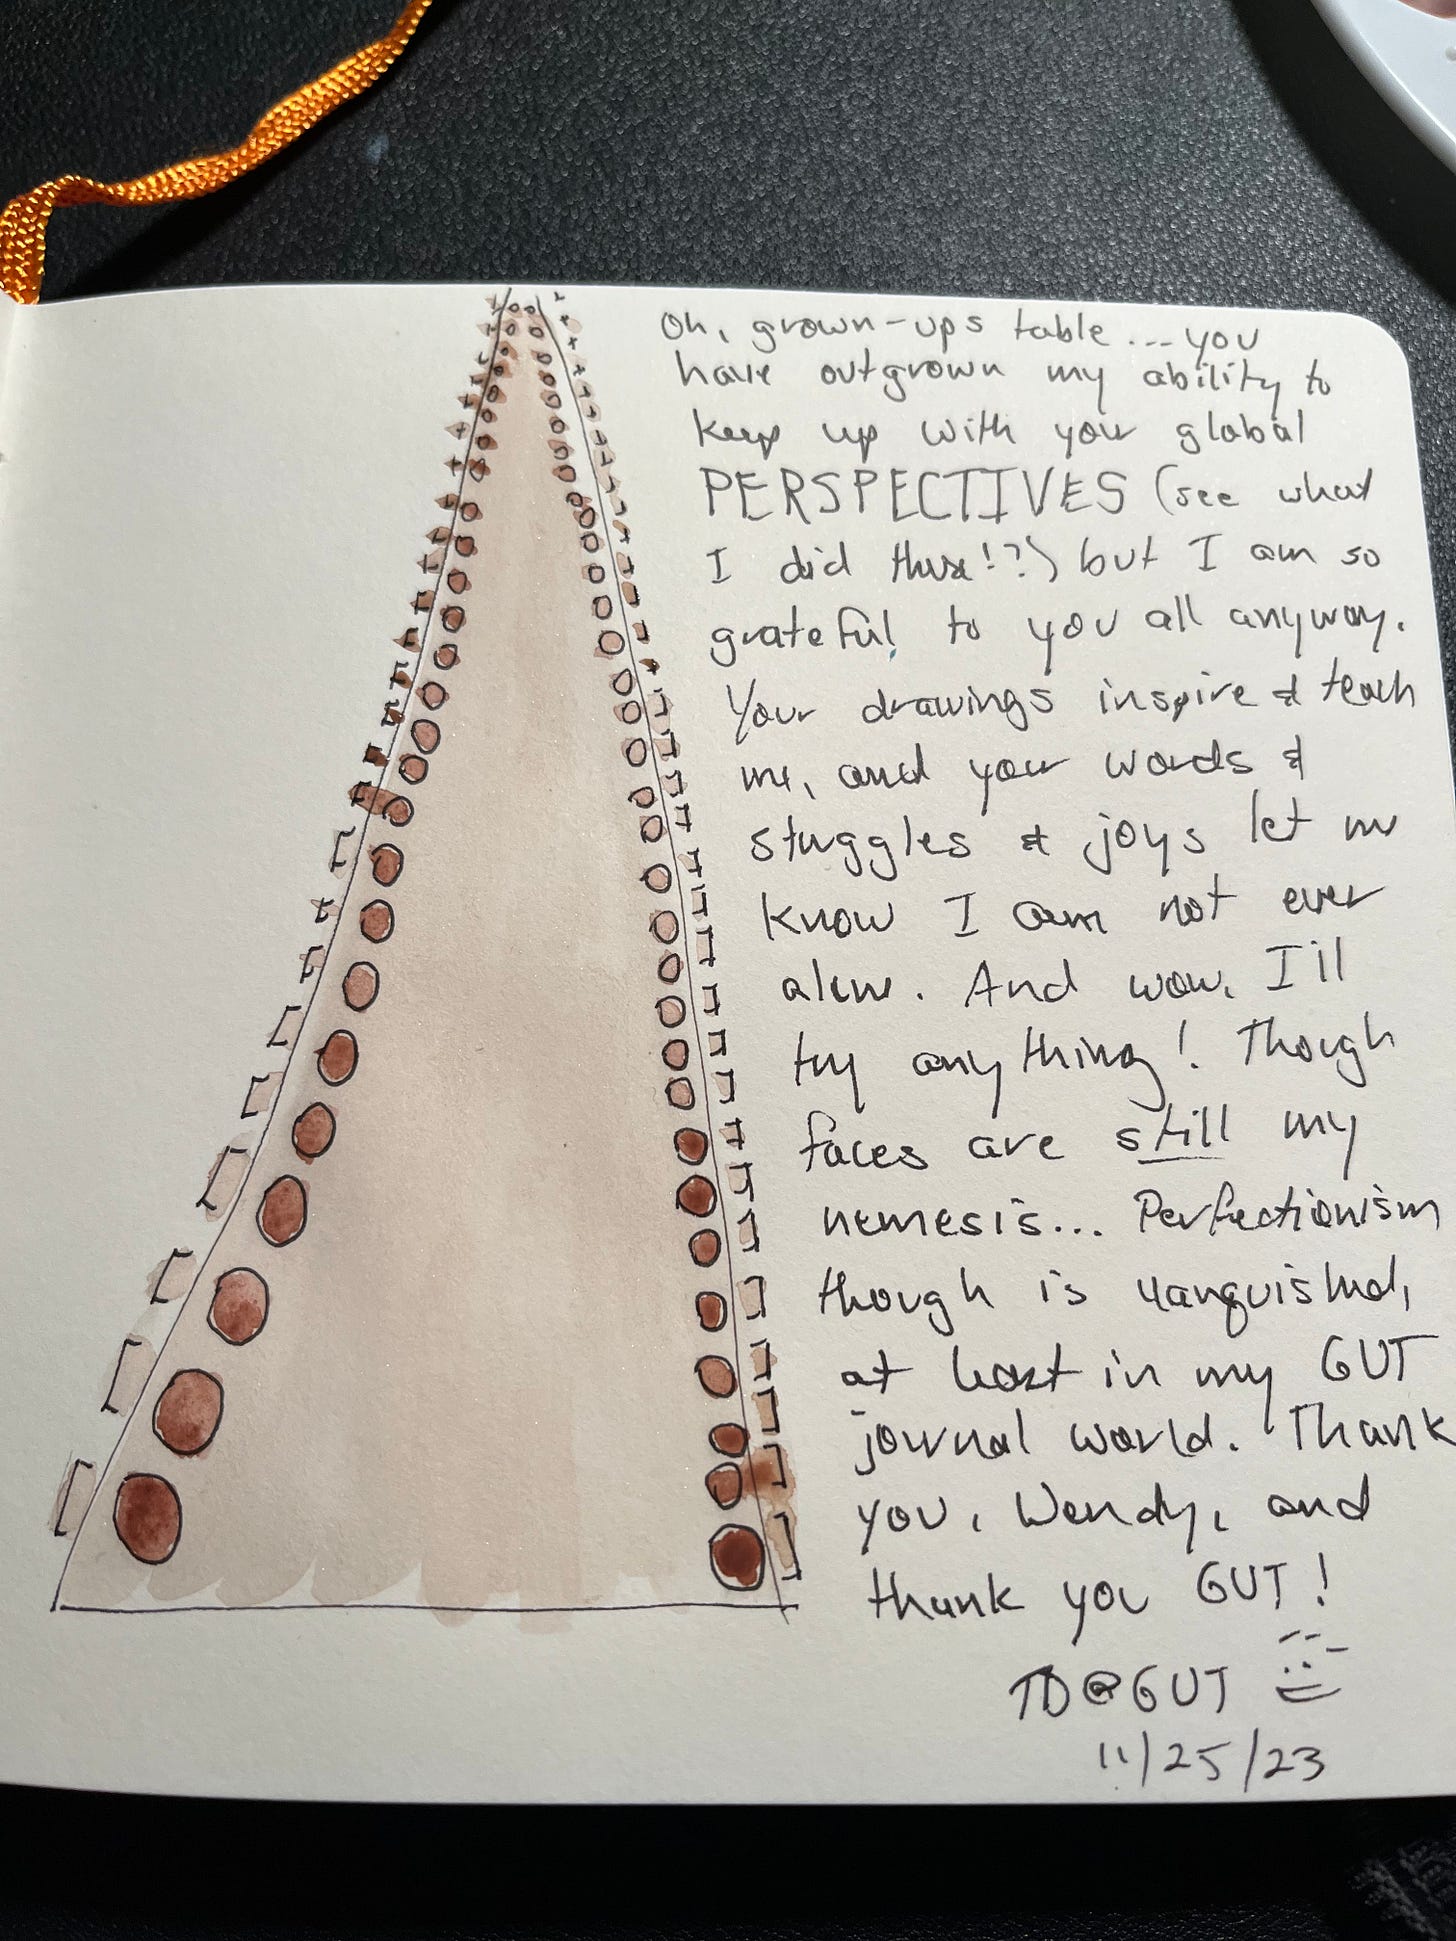 Oh, grown-ups table... you
have outgrown my ability to
keep up with your global
PERSPECTIVES (see what
I did there!?) but I am so
grateful to you all anyway.
Your drawings inspire & teach
me, and your words &
stuggles & joys let me
know I am not ever
alone. And wow, I'll
try anything! Though
faces are still my
nemesis... Perfectionism
though is vanquished,
at least in my GUT
journal world. Thank
you, Wendy, and
thank you GUT!
TD@GUT
11/25/23